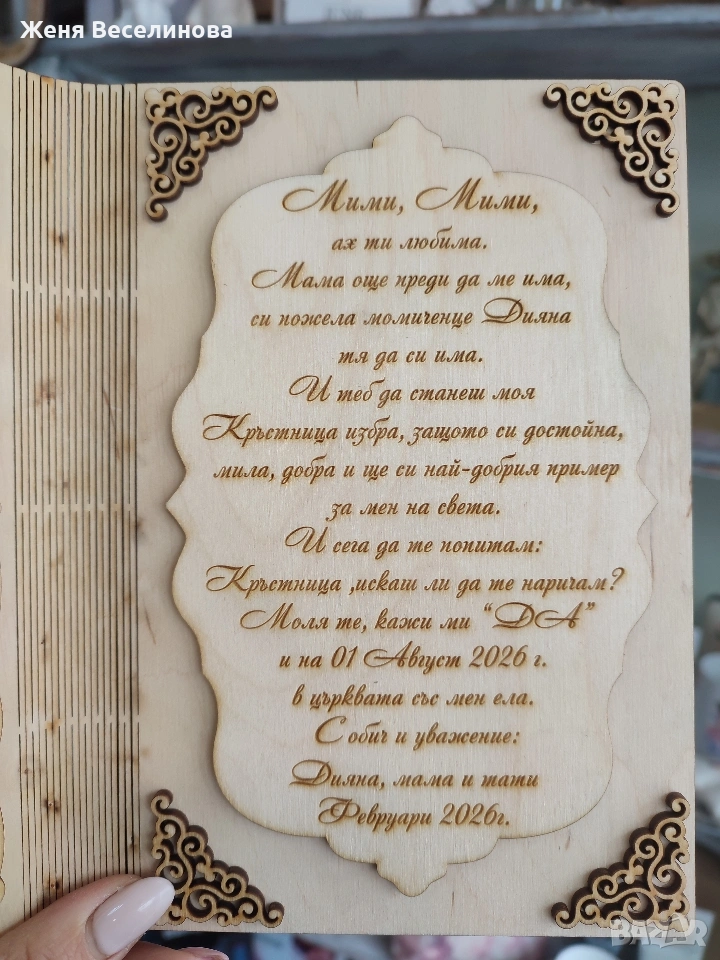 Женя Веселинова
Мими, Мими,
ах ти любима.
Мама още преди да ме има,
си пожела момиченце Дияна
тя да си има.
И теб да станеш моя
Кръстница избра, защото си достойна,
мила, добра и ще си най-добрия пример
за мен на света.
И сега да те попитам:
Кръстница ,искаш ли да те наричам?
Моля те, кажи ми “ДА”
и на 01 Август 2026 г.
в църквата със мен ела.
С обич и уважение:
Дияна, мама и тати
Февруари 2026г.
BAZAR